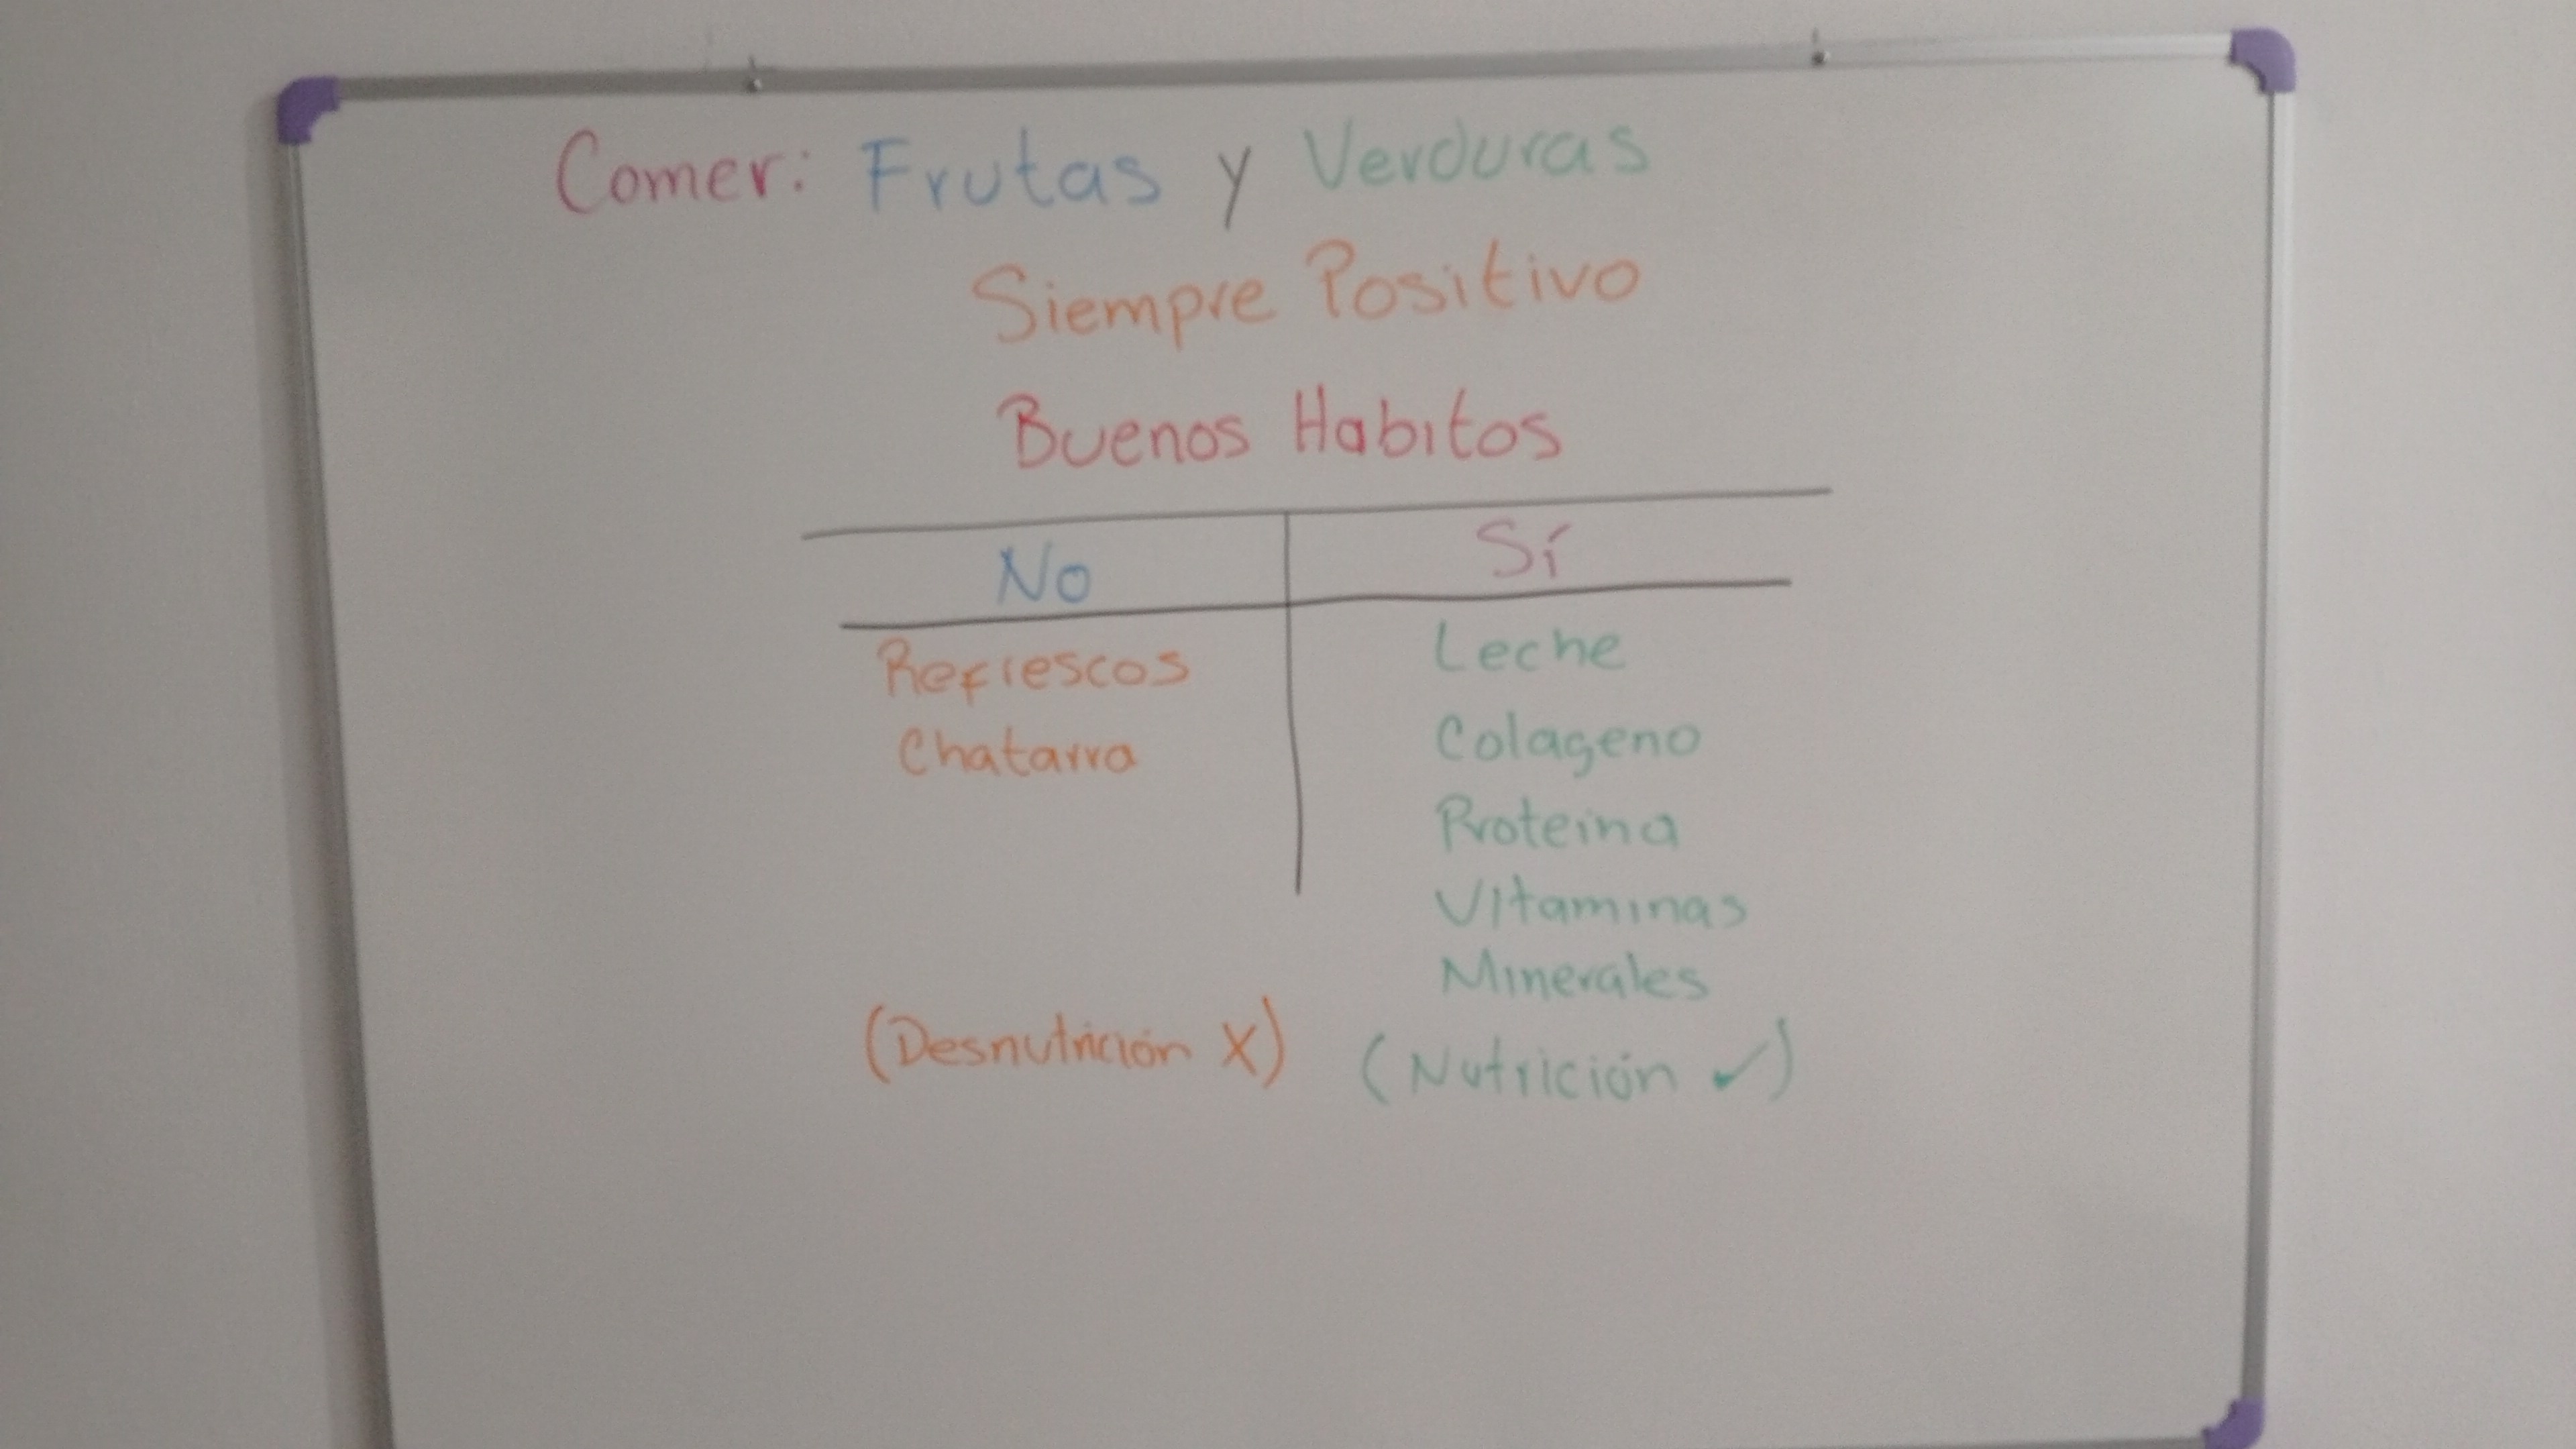 Comer: Frutas y Verduras
Siempre Positivo
Buenos Habitos
No Sí
Refrescos Leche
Chatarra Colageno
Proteina
Vitaminas
Minerales
(Desnutrición X) (Nutrición ✓)